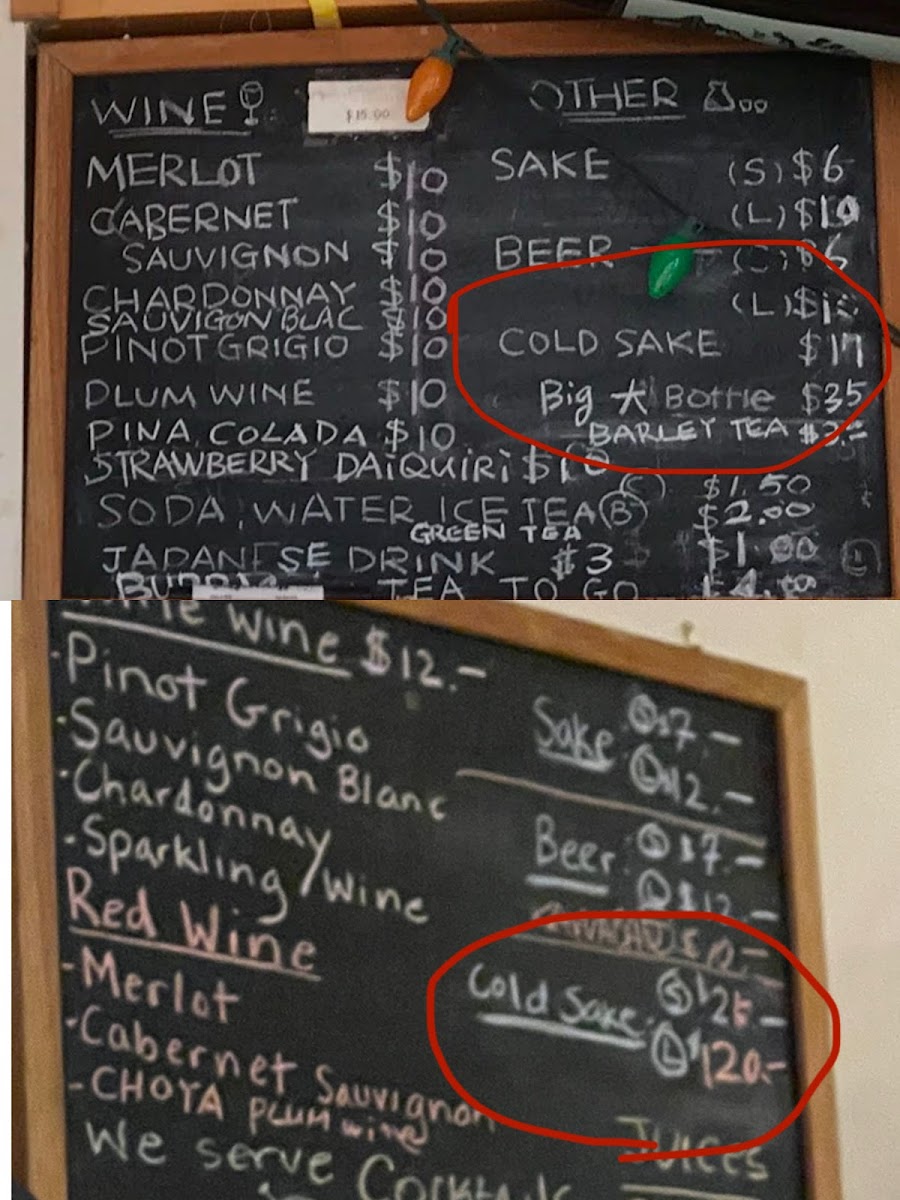 WINE
$15.00
MERLOT $10
CABERNET $10
SAUVIGNON $10
CHARDONNAY $10
SAUVIGON BLAC $10
PINOT GRIGIO $10
PLUM WINE $10
PINA COLADA $10
STRAWBERRY DAIQUIRI $10
SODA, WATER ICE TEA (B)
GREEN TEA
JAPANESE DRINK $3
TEA TO GO
OTHER
SAKE (S) $6
(L) $10
BEER $6
(L)
COLD SAKE $17
Big 大 Bottle $35
BARLEY TEA
(C) $1.50
$2.00
$1.00
Wine $12.-
·Pinot Grigio
·Sauvignon Blanc
·Chardonnay
·Sparkling/Wine
Red Wine
-Merlot
·Cabernet Sauvignon
-CHOYA PLUM wine
We serve
Sake (S) $7.-
(L) $12.-
Beer: (S) $7.-
(L) $12.-
Cold Sake: (S) $25-
(L) $120.-
JUICES